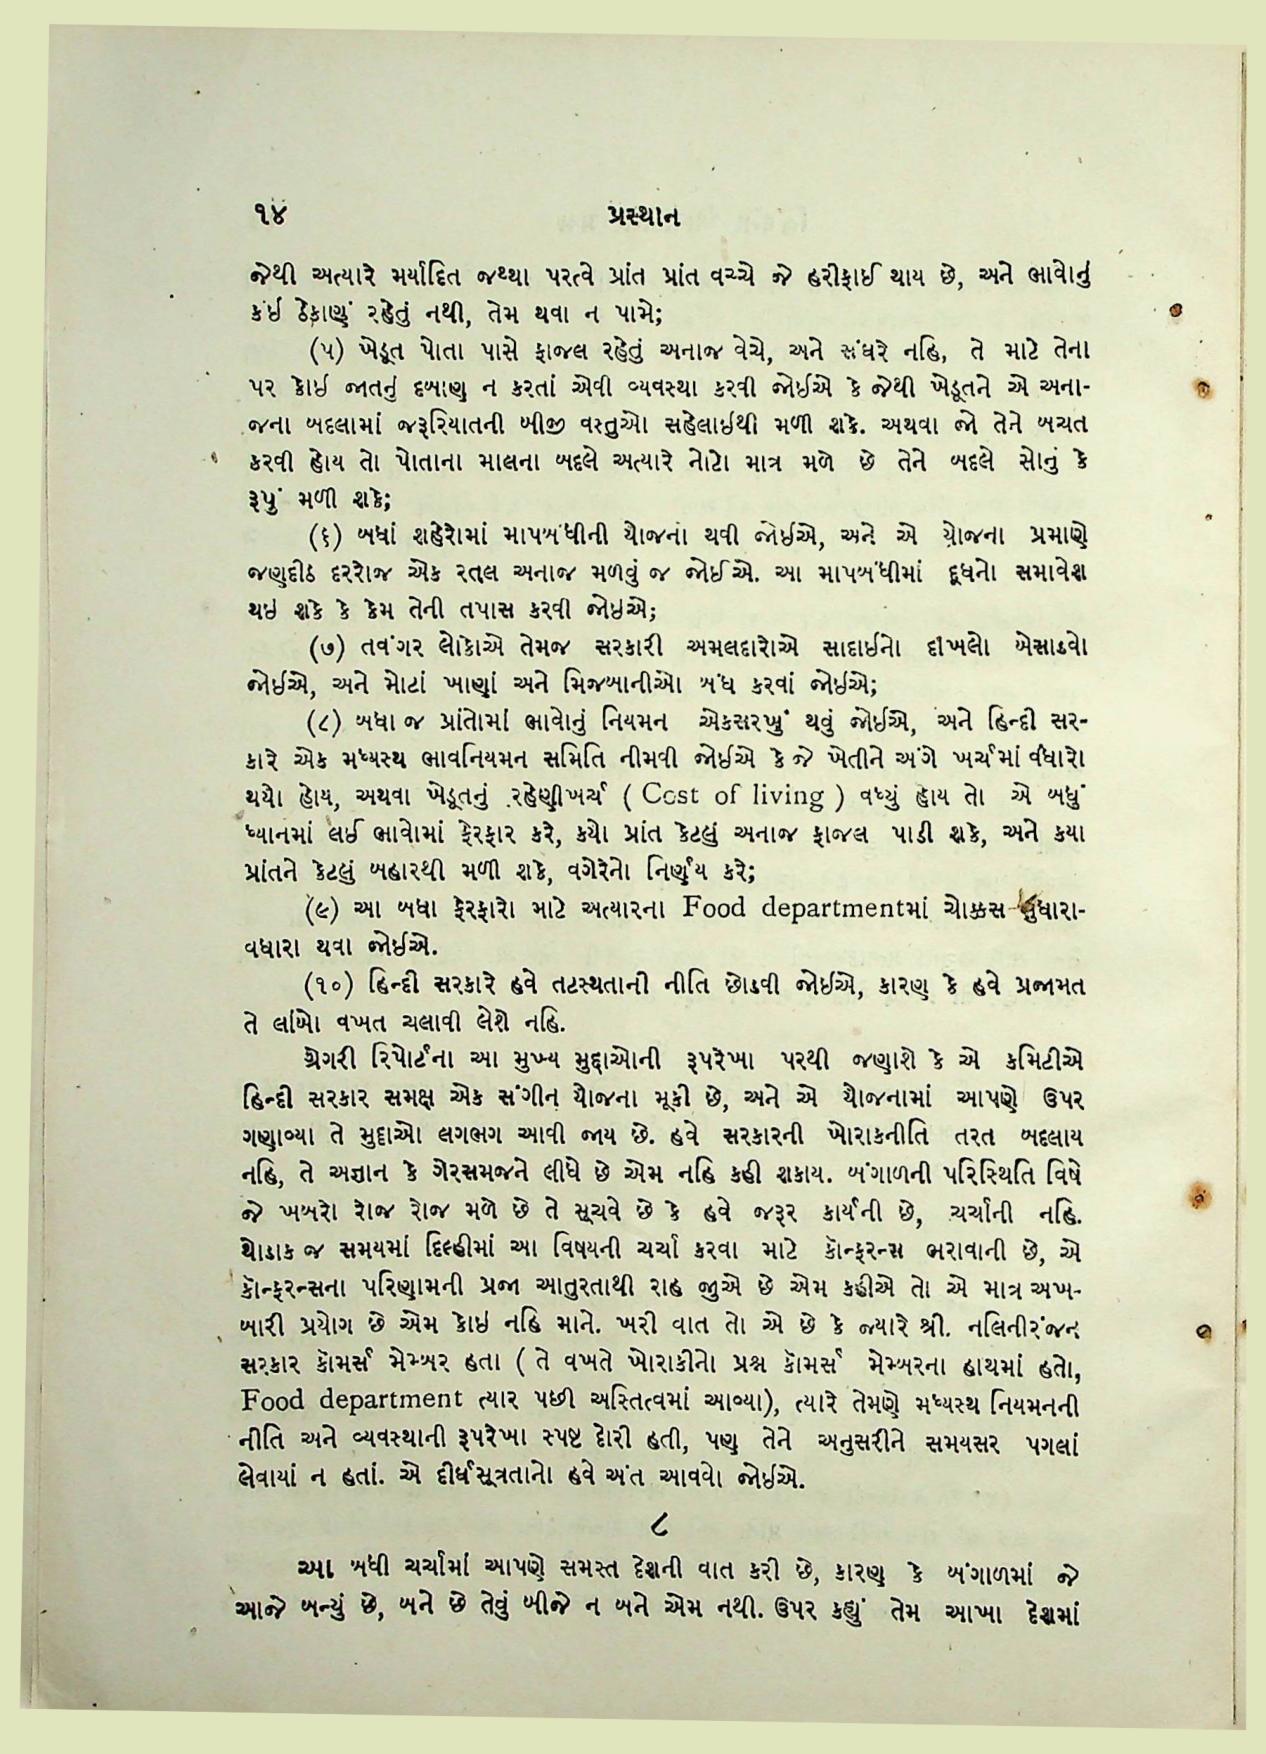 ૧૪
પ્રસ્થાન
જેથી અત્યારે મર્યાદિત જથ્થા પરત્વે પ્રાંત પ્રાંત વચ્ચે જે હરીફાઈ થાય છે, અને ભાવોનું
કંઇ ઠેકાણું રહેતું નથી, તેમ થવા ન પામે;
(૫) ખેડૂત પોતા પાસે ફાજલ રહેતું અનાજ વેચે, અને સંઘરે નહિ, તે માટે તેના
પર કોઇ જાતનું દબાણ ન કરતાં એવી વ્યવસ્થા કરવી જોઇએ કે જેથી ખેડૂતને એ અના-
જના બદલામાં જરૂરિયાતની બીજી વસ્તુઓ સહેલાઇથી મળી શકે. અથવા જો તેને બચત
કરવી હોય તો પોતાના માલના બદલે અત્યારે નોટો માત્ર મળે છે તેને બદલે સોનું કે
રૂપું મળી શકે;
(૬) બધાં શહેરોમાં માપબંધીની યોજના થવી જોઇએ, અને એ યોજના પ્રમાણે
જણદીઠ દરરોજ એક રતલ અનાજ મળવું જ જોઈએ. આ માપબંધીમાં દૂધનો સમાવેશ
થઇ શકે કે કેમ તેની તપાસ કરવી જોઇએ;
(૭) તવંગર લોકોએ તેમજ સરકારી અમલદારોએ સાદાઈનો દાખલો બેસાડવો
જોઇએ, અને મોટાં ખાણાં અને મિજબાનીઓ બંધ કરવાં જોઇએ;
(૮) બધા જ પ્રાંતોમાં ભાવોનું નિયમન એકસરખું થવું જોઇએ, અને હિન્દી સર-
કારે એક મધ્યસ્થ ભાવનિયમન સમિતિ નીમવી જોઇએ કે જે ખેતીને અંગે ખર્ચમાં વધારો
થયો હોય, અથવા ખેડૂતનું રહેણીખર્ચ ( Cost of living ) વધ્યું હોય તો એ બધું
ધ્યાનમાં લઈ ભાવોમાં ફેરફાર કરે, કયો પ્રાંત કેટલું અનાજ ફાજલ પાડી શકે, અને કયા
પ્રાંતને કેટલું બહારથી મળી શકે, વગેરેનો નિર્ણય કરે;
(૯) આ બધા ફેરફારો માટે અત્યારના Food departmentમાં ચોક્કસ સુધારા-
વધારા થવા જોઇએ.
(૧૦) હિન્દી સરકારે હવે તટસ્થતાની નીતિ છોડવી જોઇએ, કારણ કે હવે પ્રજામત
તે લાંબો વખત ચલાવી લેશે નહિ.
ગ્રેગરી રિપોર્ટના આ મુખ્ય મુદ્દાઓની રૂપરેખા પરથી જણાશે કે એ કમિટીએ
હિન્દી સરકાર સમક્ષ એક સંગીન યોજના મૂકી છે, અને એ યોજનામાં આપણે ઉપર
ગણાવ્યા તે મુદ્દાઓ લગભગ આવી જાય છે. હવે સરકારની ખોરાકનીતિ તરત બદલાય
નહિ, તે અજ્ઞાન કે ગેરસમજને લીધે છે એમ નહિ કહી શકાય. બંગાળની પરિસ્થિતિ વિષે
જે ખબરો રોજ રોજ મળે છે તે સૂચવે છે કે હવે જરૂર કાર્યની છે, ચર્ચાની નહિ.
થોડાક જ સમયમાં દિલ્હીમાં આ વિષયની ચર્ચા કરવા માટે કૉન્ફરન્સ ભરાવાની છે, એ
કૉન્ફરન્સના પરિણામની પ્રજા આતુરતાથી રાહ જુએ છે એમ કહીએ તો એ માત્ર અખ-
બારી પ્રયોગ છે એમ કોઇ નહિ માને. ખરી વાત તો એ છે કે જ્યારે શ્રી. નલિનીરંજન
સરકાર કૉમર્સ મેમ્બર હતા ( તે વખતે ખોરાકીનો પ્રશ્ન કૉમર્સ મેમ્બરના હાથમાં હતો,
Food department ત્યાર પછી અસ્તિત્વમાં આવ્યા), ત્યારે તેમણે મધ્યસ્થ નિયમનની
નીતિ અને વ્યવસ્થાની રૂપરેખા સ્પષ્ટ દોરી હતી, પણ તેને અનુસરીને સમયસર પગલાં
લેવાયાં ન હતાં. એ દીર્ઘસૂત્રતાનો હવે અંત આવવો જોઇએ.
૮
આ બધી ચર્ચામાં આપણે સમસ્ત દેશની વાત કરી છે, કારણ કે બંગાળમાં જે
આજે બન્યું છે, બને છે તેવું બીજે ન બને એમ નથી. ઉપર કહ્યું તેમ આખા દેશમાં